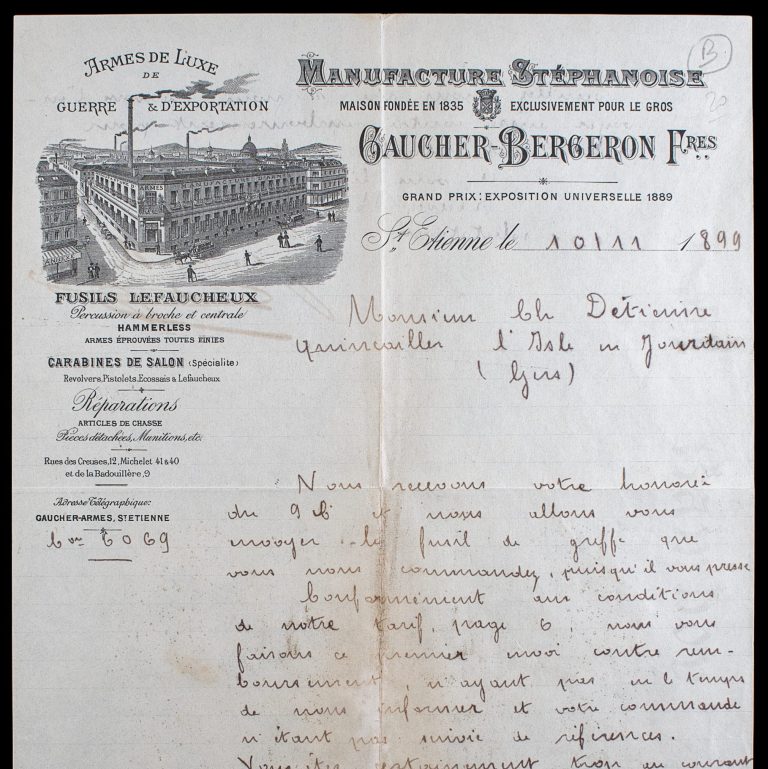 ARMES DE LUXE
DE
GUERRE & D'EXPORTATION
ARMES
MANUFACTURE STÉPHANOISE
MAISON FONDÉE EN 1835 EXCLUSIVEMENT POUR LE GROS
GAUCHER-BERGERON FRES
GRAND PRIX: EXPOSITION UNIVERSELLE 1889
St Etienne le 10/11 1899
B
FUSILS LEFAUCHEUX
Percussion à broche et centrale
HAMMERLESS
ARMES ÉPROUVÉES TOUTES FINIES
CARABINES DE SALON (Spécialité)
Revolvers, Pistolets, Ecossais & Lefaucheux
Réparations
ARTICLES DE CHASSE
Pièces détachées, Munitions, etc.
Rues des Creuses, 12, Michelet 41 & 40
et de la Badouillère, 9
Adresse Télégraphique:
GAUCHER-ARMES, ST ETIENNE
6069
Monsieur Ch Détienne
quincailler l'Isle en Jourdain
(Gers)
Nous recevons votre honorée
du 9 Ct et nous allons vous
envoyer le fusil de griffe que
vous nous commandez, puisqu'il vous presse
Conformément aux conditions
de notre tarif, page 6, nous vous
faisons ce premier envoi contre rem-
boursement, n'ayant pas eu le temps
de nous informer et votre commande
n'étant pas suivie de références.
Vous êtes certainement trop au courant